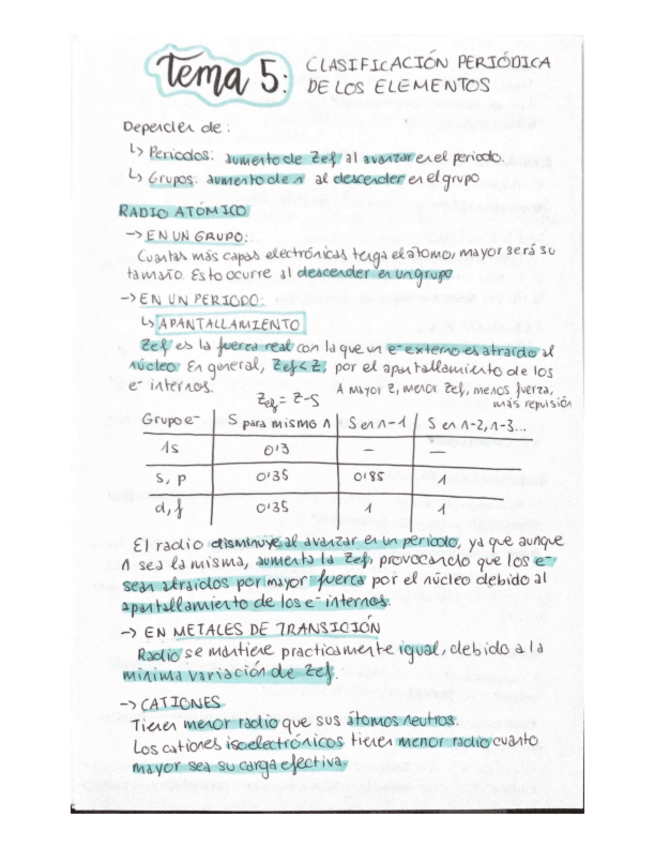 Tema 5: CLASIFICACIÓN PERIÓDICA
DE LOS ELEMENTOS
Depender de:
↳ Periodos: aumento de Zef al avanzar en el periodo.
↳ Grupos: aumento de n al descender en el grupo
RADIO ATÓMICO
→ EN UN GRUPO:
Cuantas más capas electrónicas tenga el átomo, mayor será su
tamaño. Esto ocurre al descender en un grupo
→ EN UN PERIODO:
↳ APANTALLAMIENTO
Zef es la fuerza real con la que un e⁻ externo es atraído al
núcleo. En general, Zef < Z, por el apantallamiento de los
e⁻ internos.
A mayor Z, menor Zef, menos fuerza,
más repulsión
Zef = Z-S
Grupo e⁻ | S para mismo n | S en n-1 | S en n-2, n-3...
1s | 0'3 | — | —
s, p | 0'35 | 0'85 | 1
d, f | 0'35 | 1 | 1
El radio disminuye al avanzar en un periodo, ya que aunque
n sea la misma, aumenta la Zef, provocando que los e⁻
sean atraídos por mayor fuerza por el núcleo debido al
apantallamiento de los e⁻ internos.
→ EN METALES DE TRANSICIÓN
Radio se mantiene practicamente igual, debido a la
mínima variación de Zef.
→ CATIONES
Tienen menor radio que sus átomos neutros.
Los cationes isoelectrónicos tienen menor radio cuanto
mayor sea su carga efectiva.